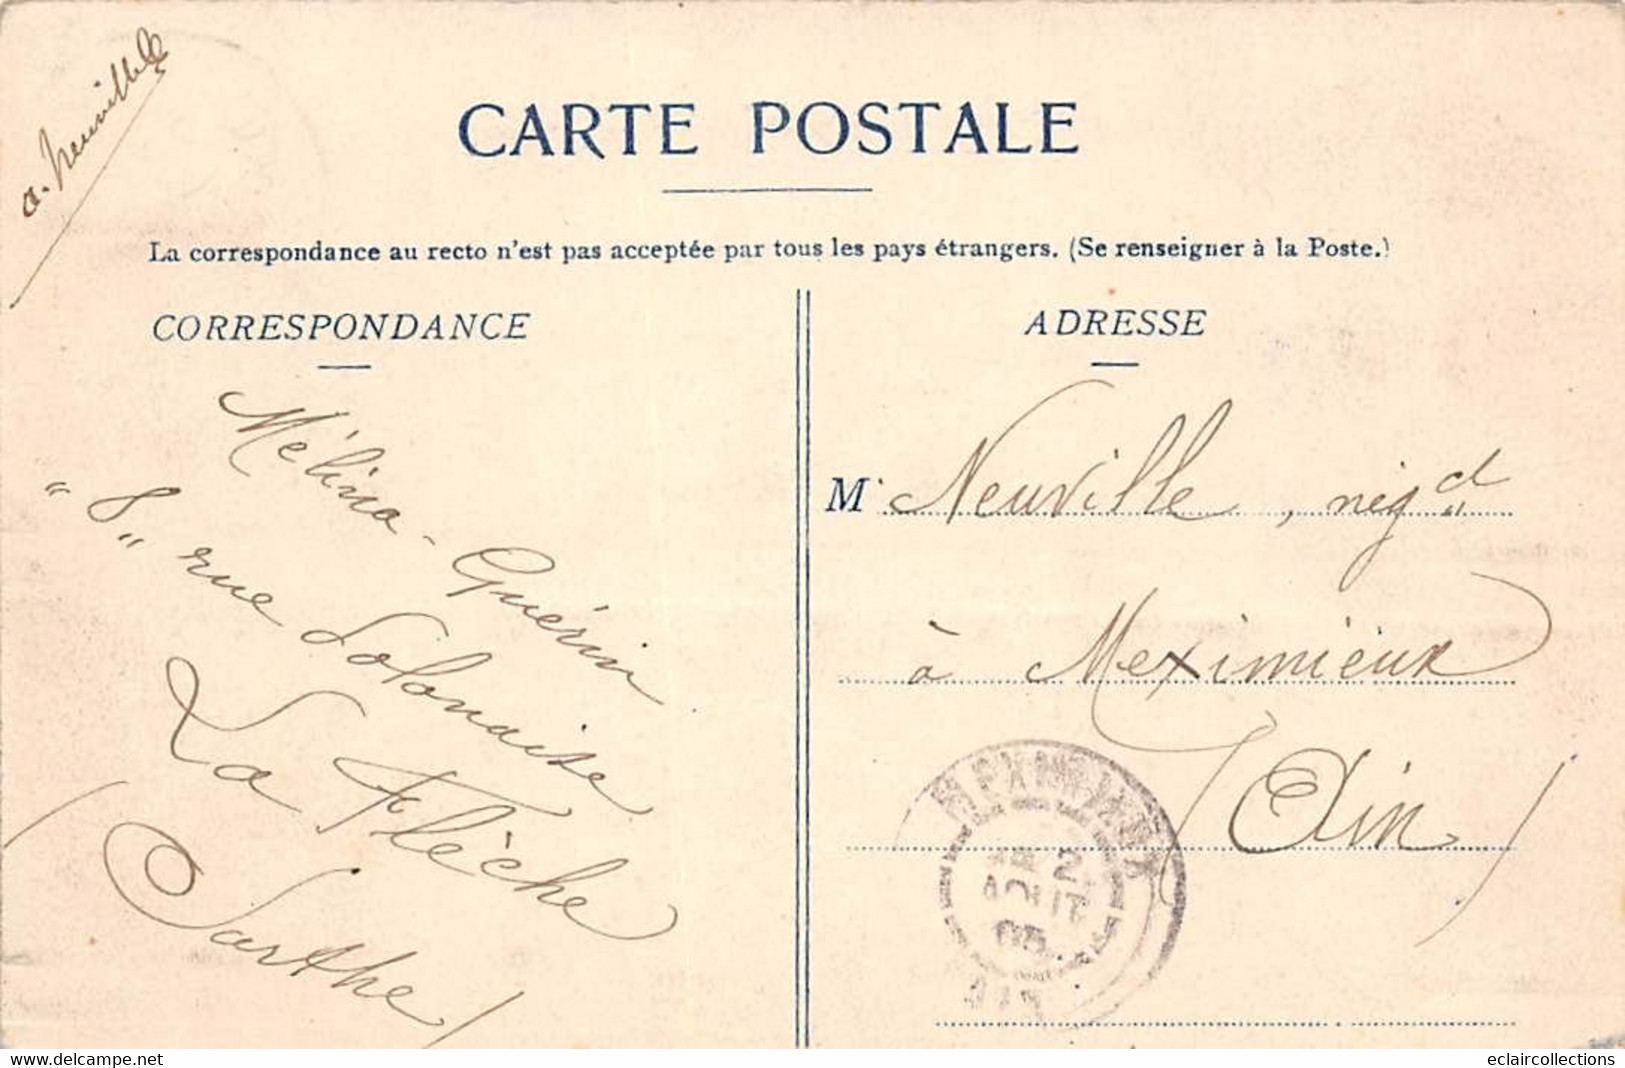 a. Neuville
CARTE POSTALE
La correspondance au recto n'est pas acceptée par tous les pays étrangers. (Se renseigner à la Poste.)
CORRESPONDANCE
Mélina-Guérin
"8" rue Solonaise
La Flèche
(Sarthe)
ADRESSE
M Neuville, négd
à Meximieux
(Ain)
MEXIMIEUX
2
AOUT
05
AIN
eclaircollections